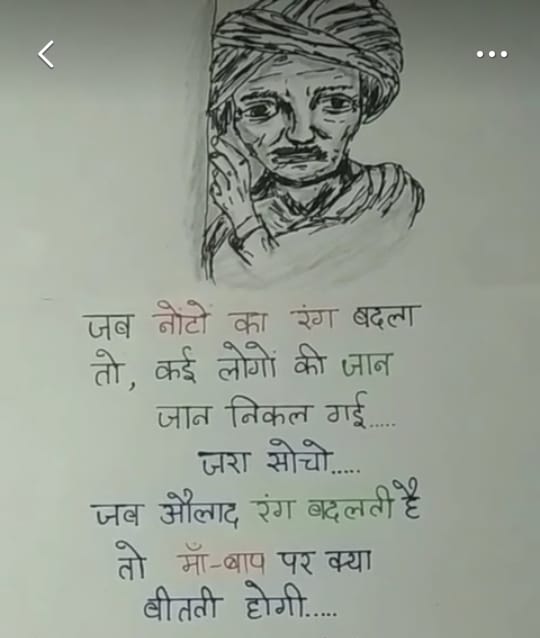 जब नोंटों का रंग बदला
तो, कई लोगों की जान
जान निकल गई.....
जरा सोचो.....
जब औलाद रंग बदलती है
तो माँ-बाप पर क्या
बीतती होगी.....